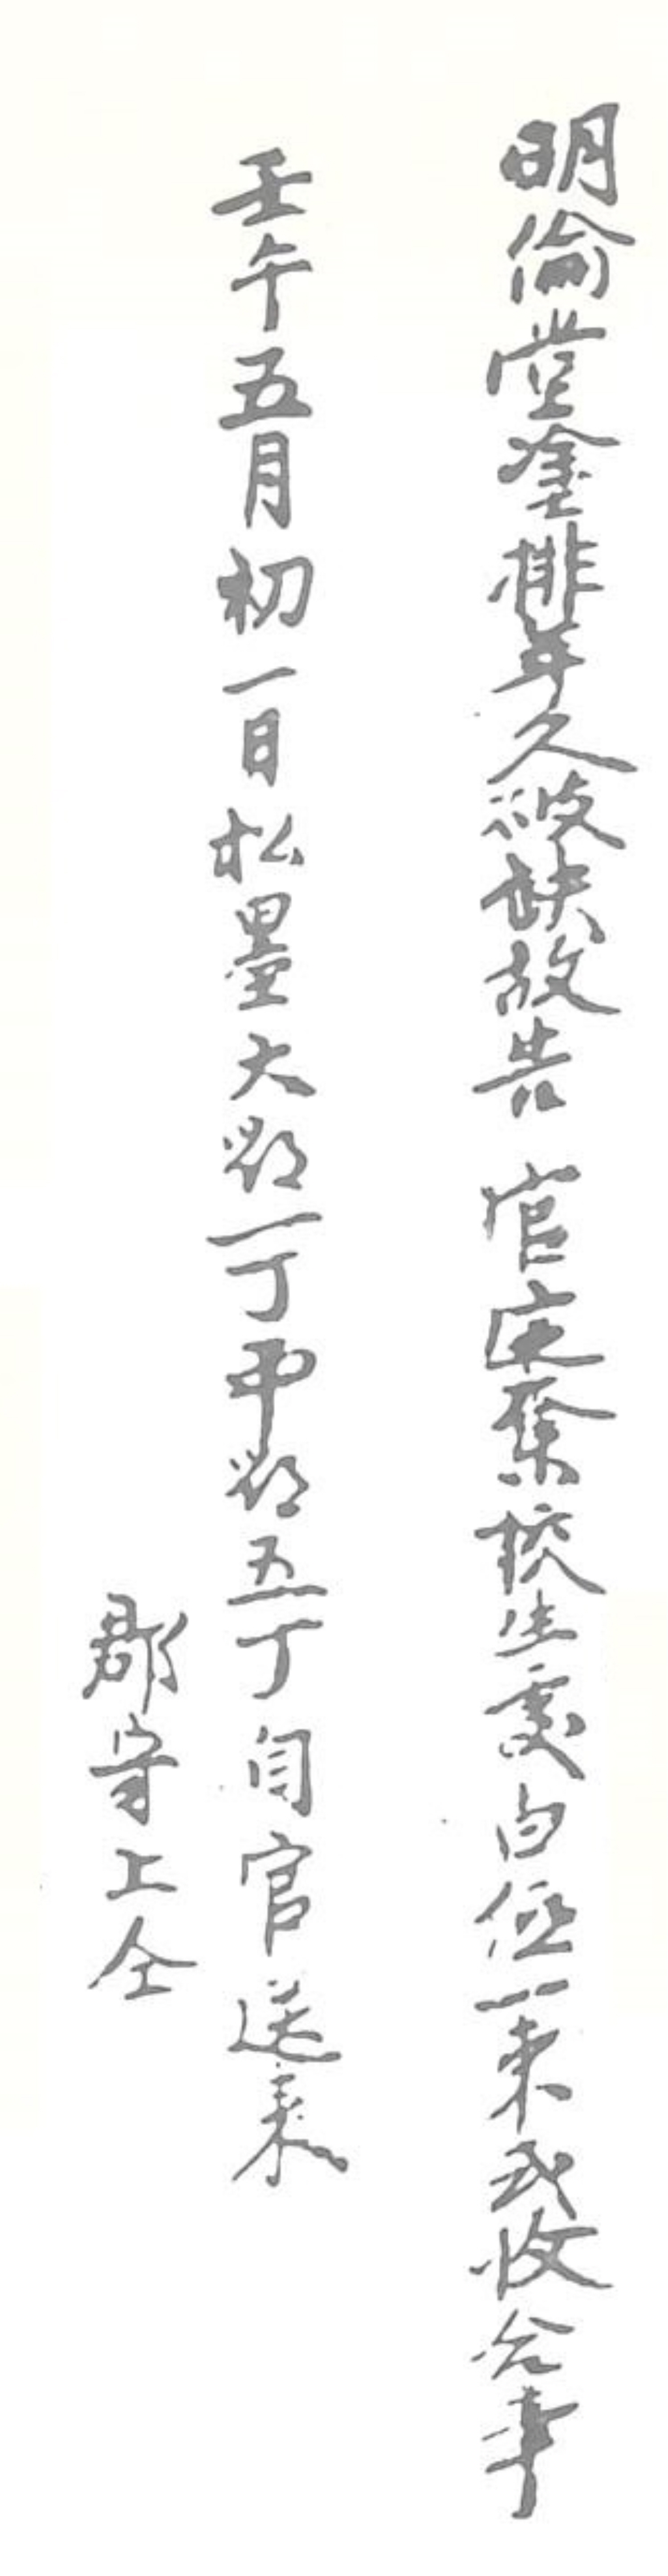 明倫堂塗排年久破缺故告 官庭齊校生處白紙一束式收合事
壬午五月初一日松墨大鄧一丁中鄧五丁自官送来
郡守上仝